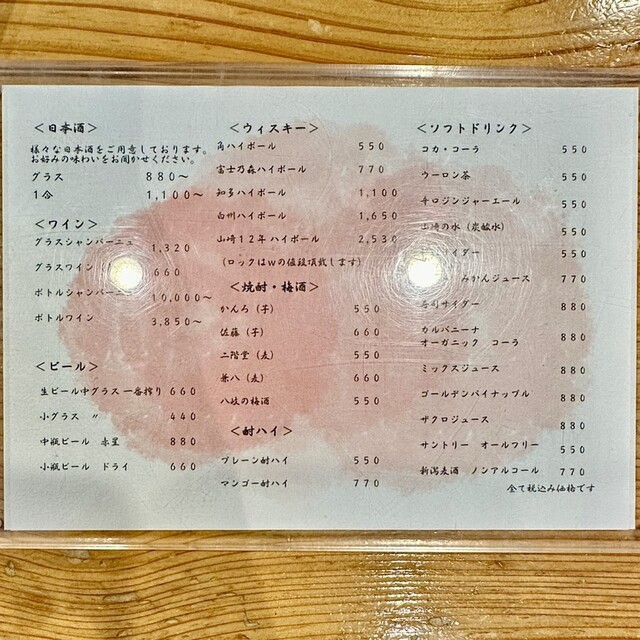 <日本酒>
様々な日本酒をご用意しております。
お好みの味わいをお聞かせください。
グラス 880〜
1合 1,100〜
<ワイン>
グラスシャンパーニュ 1,320
グラスワイン 660
ボトルシャンパーニュ 10,000〜
ボトルワイン 3,850〜
<ビール>
生ビール中グラス 一番搾り 660
小グラス 〃 440
中瓶ビール 赤星 880
小瓶ビール ドライ 660
<ウィスキー>
角ハイボール 550
富士乃森ハイボール 770
知多ハイボール 1,100
白州ハイボール 1,650
山崎12年ハイボール 2,530
(ロックはwの値段頂戴します)
<焼酎・梅酒>
かんろ(子) 550
佐藤(子) 660
二階堂(麦) 550
兼八(麦) 660
八岐の梅酒 550
<酎ハイ>
プレーン酎ハイ 550
マンゴー酎ハイ 770
<ソフトドリンク>
コカ・コーラ 550
ウーロン茶 550
辛口ジンジャーエール 550
山崎の水(炭酸水) 550
イダー 550
みかんジュース 770
寿司サイダー 880
カルパニーナ
オーガニック コーラ 880
ミックスジュース 880
ゴールデンパイナップル 880
ザクロジュース 880
サントリー オールフリー 550
新潟麦酒 ノンアルコール 770
全て税込み価格です